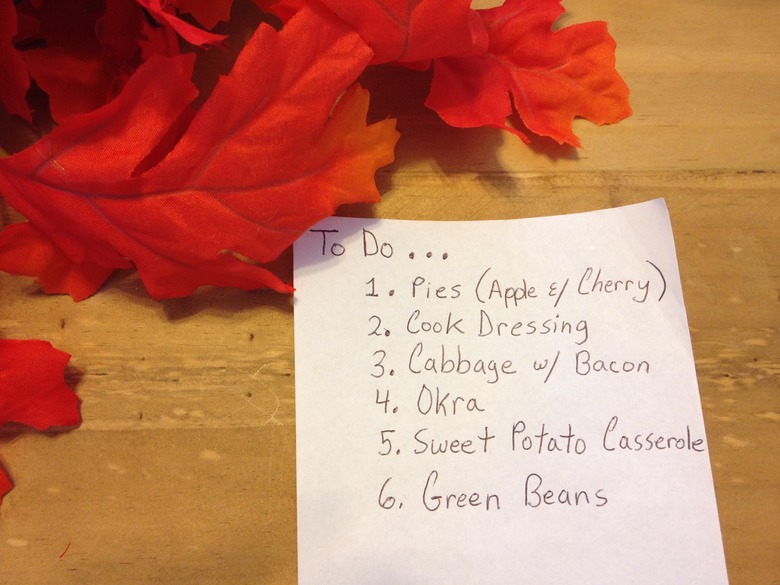 To Do ...
1. Pies (Apple & Cherry)
2. Cook Dressing
3. Cabbage w/ Bacon
4. Okra
5. Sweet Potato Casserole
6. Green Beans